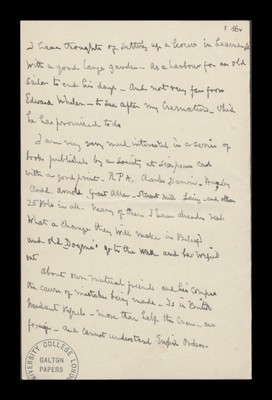 I have thoughts of setting up a house in Leamington
with a good large garden - as a harbour for an old
Sailor to end his days - And not very far from
Edward Whelen - to see after my Cremation - which
he has promised to do
I am very much interested in a series of
books published by a Society at sixpence each
with a good print - R.P.A. Charles Darwin, Huxley
Clodd, Arnold, Grant Allen - Stuart Mill Laing, and others
25 Vols in all. Many of them I have already read
What a change they will make in Beliefs
and old Dogmas go to the wall and be wiped
out
About our mutual friend and his compass
the cause of mistakes being made - is in British
Merchant Vessels - more than half the Crew - are
foreign - and cannot understand English Orders -
UNIVERSITY COLLEGE LONDON
GALTON
PAPERS